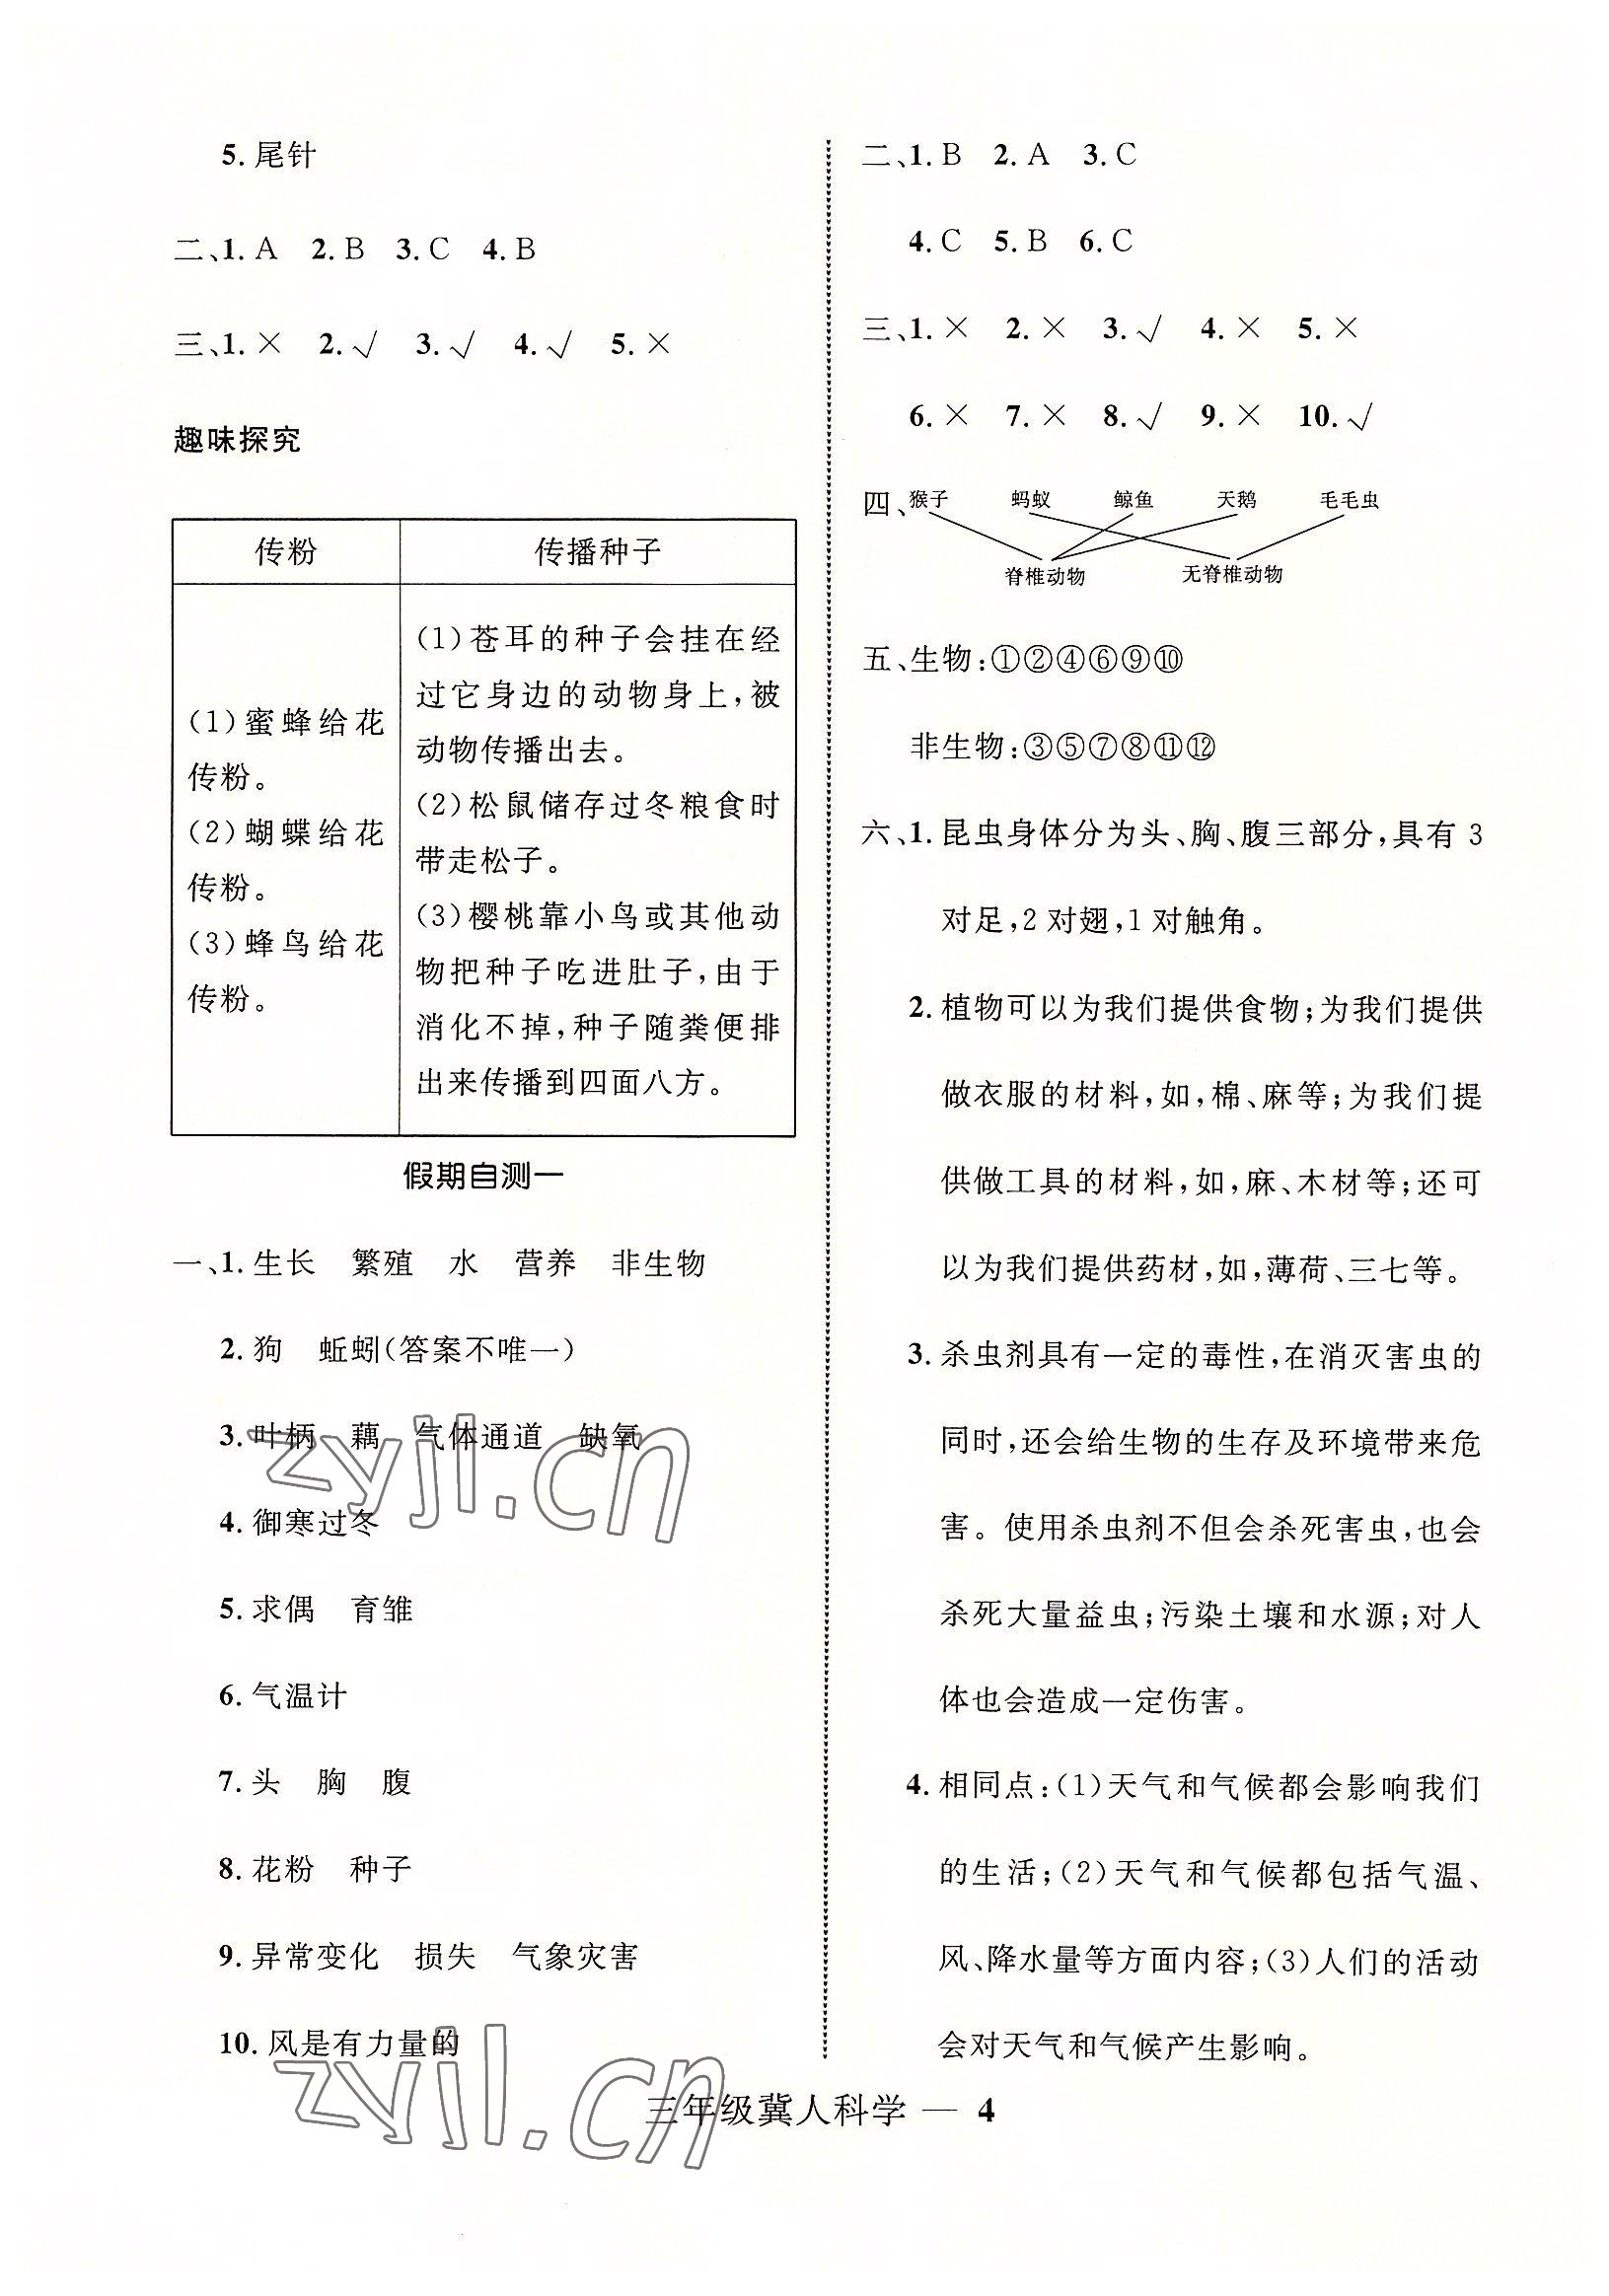 5. 尾针
二、1. A 2. B 3. C 4. B
三、1. × 2. √ 3. √ 4. √ 5. ×
趣味探究
传粉 传播种子
(1)蜜蜂给花
传粉。
(2)蝴蝶给花
传粉。
(3)蜂鸟给花
传粉。
(1)苍耳的种子会挂在经
过它身边的动物身上,被
动物传播出去。
(2)松鼠储存过冬粮食时
带走松子。
(3)樱桃靠小鸟或其他动
物把种子吃进肚子,由于
消化不掉,种子随粪便排
出来传播到四面八方。
假期自测一
一、1. 生长 繁殖 水 营养 非生物
2. 狗 蚯蚓(答案不唯一)
3. 叶柄 藕 气体通道 缺氧
4. 御寒过冬
5. 求偶 育雏
6. 气温计
7. 头 胸 腹
8. 花粉 种子
9. 异常变化 损失 气象灾害
10. 风是有力量的
二、1. B 2. A 3. C
4. C 5. B 6. C
三、1. × 2. × 3. √ 4. × 5. ×
6. × 7. × 8. √ 9. × 10. √
四、猴子 蚂蚁 鲸鱼 天鹅 毛毛虫
脊椎动物 无脊椎动物
五、生物:①②④⑥⑨⑩
非生物:③⑤⑦⑧⑪⑫
六、1. 昆虫身体分为头、胸、腹三部分,具有 3
对足,2 对翅,1 对触角。
2. 植物可以为我们提供食物;为我们提供
做衣服的材料,如,棉、麻等;为我们提
供做工具的材料,如,麻、木材等;还可
以为我们提供药材,如,薄荷、三七等。
3. 杀虫剂具有一定的毒性,在消灭害虫的
同时,还会给生物的生存及环境带来危
害。使用杀虫剂不但会杀死害虫,也会
杀死大量益虫;污染土壤和水源;对人
体也会造成一定伤害。
4. 相同点:(1)天气和气候都会影响我们
的生活;(2)天气和气候都包括气温、
风、降水量等方面内容;(3)人们的活动
会对天气和气候产生影响。
三年级冀人科学 — 4
zyjl.cn
zyjl.cn